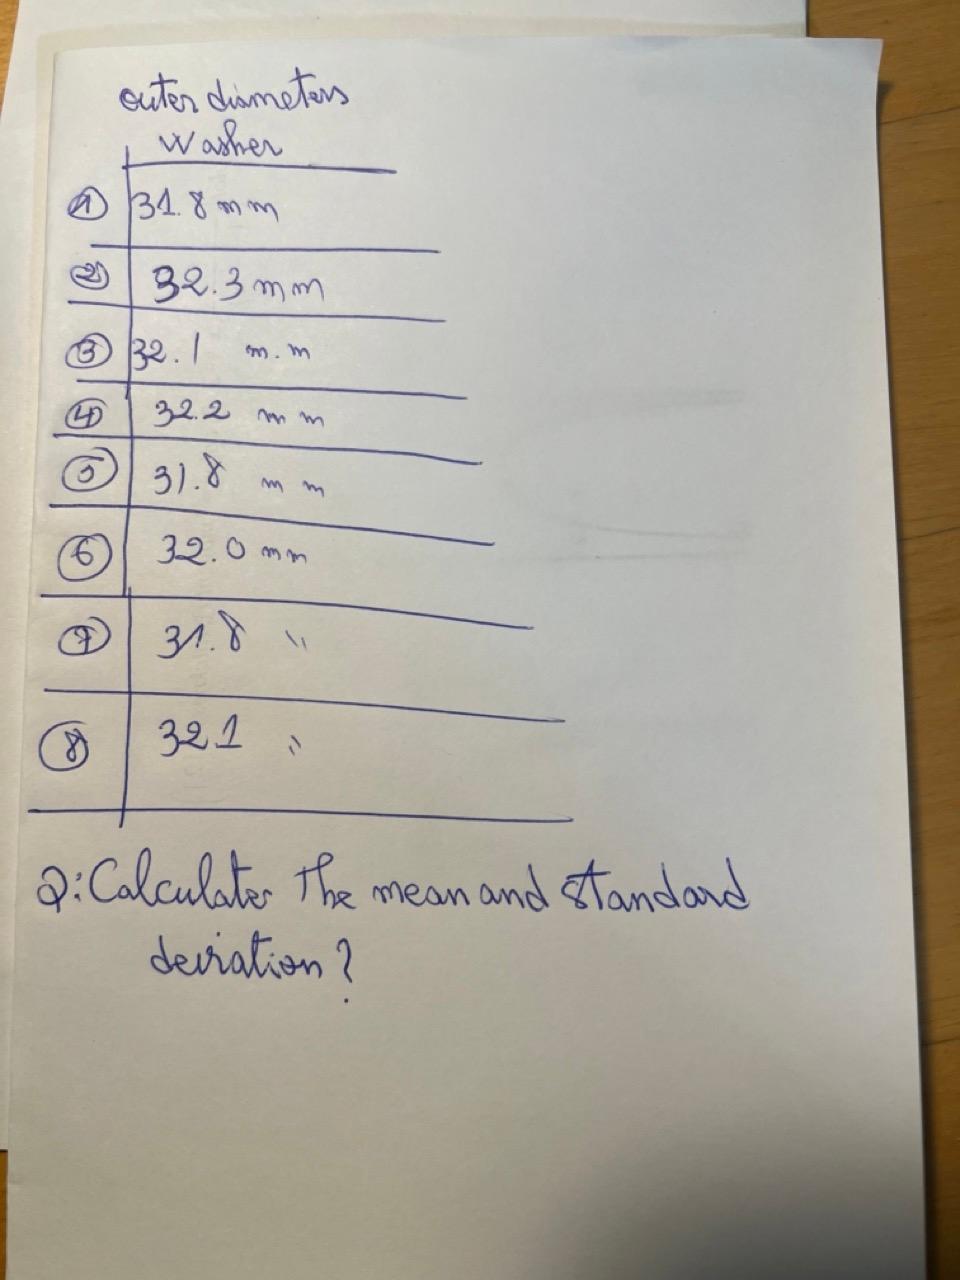 outer diameters
Washer
① 31.8 mm
② 32.3 mm
③ 32.1 m.m
④ 32.2 mm
⑤ 31.8 mm
⑥ 32.0 mm
⑦ 31.8 "
⑧ 32 1 "
Q: Calculate The mean and standard
deviation?